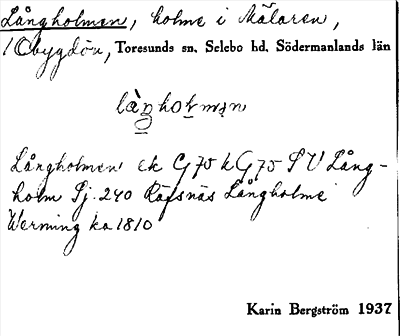 Långholmen, holme i Mälaren,
/Obygdön, Toresunds sn, Selebo hd, Södermanlands län
làŋholmən
Långholmen ek G 75 k G 75 S V Lång-
holm Sj. 240 Räfsnäs Långholme
Werming ka 1810
Karin Bergström 1937